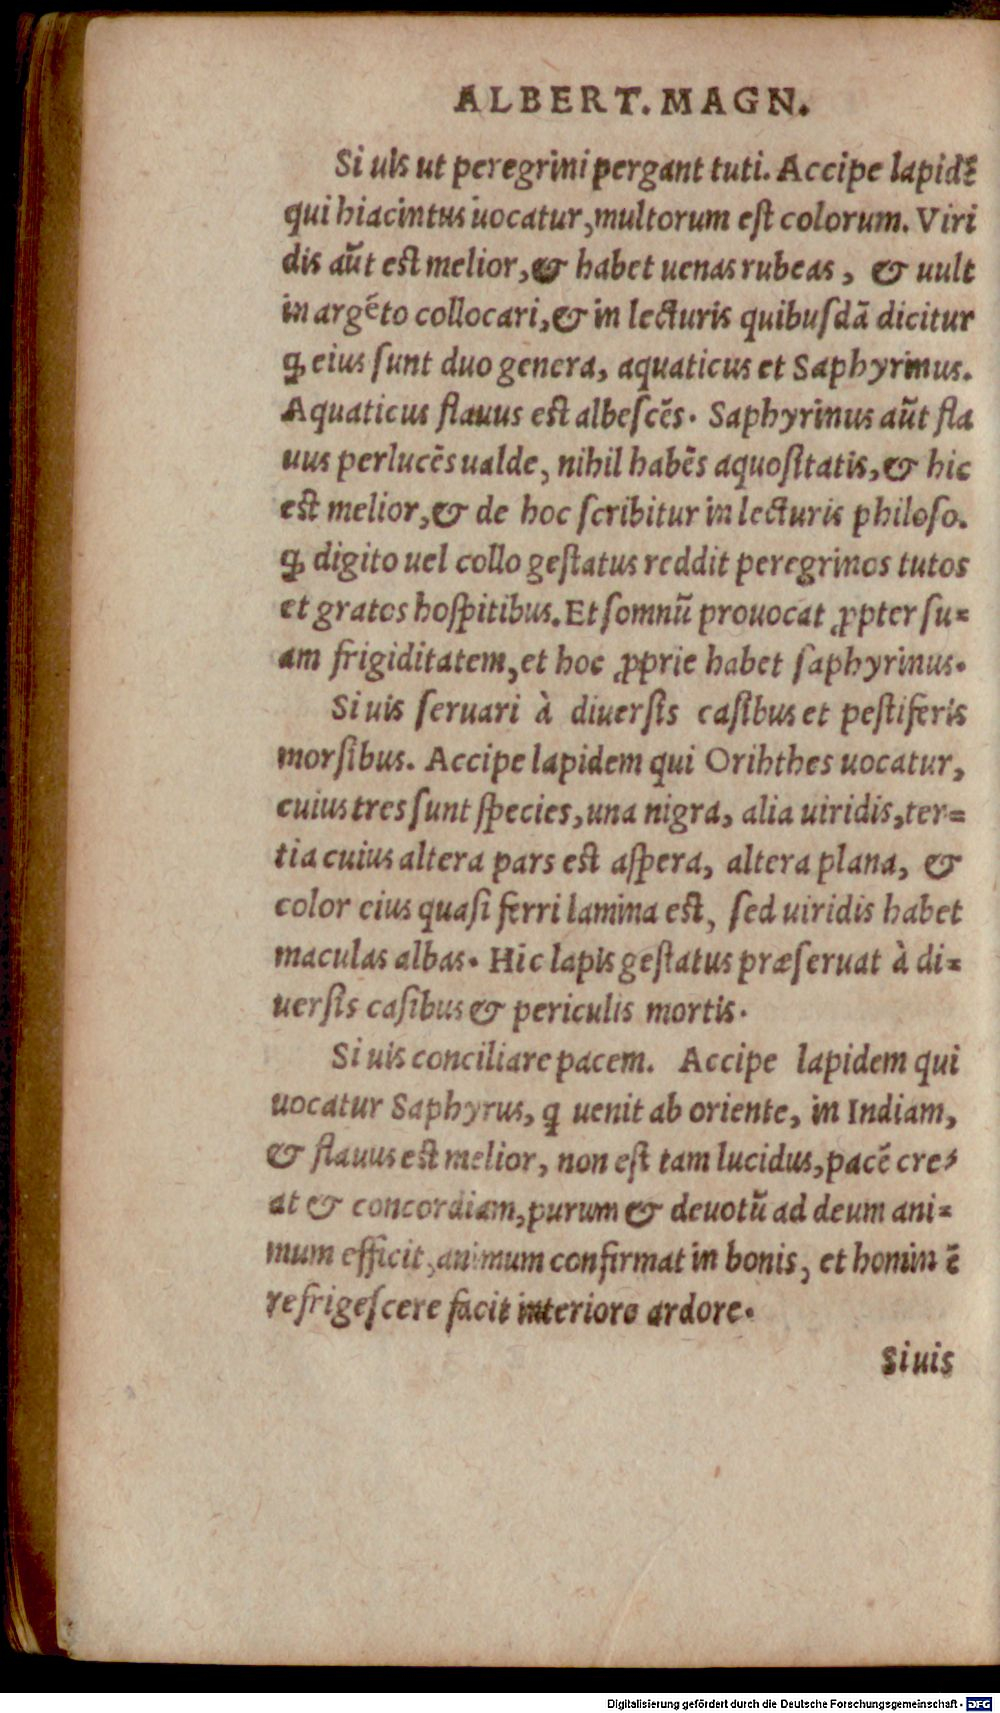 ALBERT. MAGN.
Si uis ut peregrini pergant tuti. Accipe lapidẽ
qui hiacintus uocatur, multorum eſt colorum. Viri
dis aũt est melior, & habet uenas rubeas, & uult
in argẽto collocari, & in lecturis quibuſdã dicitur
ꝙ eius ſunt duo genera, aquaticus et Saphyrinus.
Aquaticus flauus est albeſcẽs. Saphyrinus aũt fla
uus perlucẽs ualde, nihil habẽs aquoſitatis, & hic
est melior, & de hoc ſcribitur in lecturis philoſo.
ꝙ digito uel collo geſtatus reddit peregrinos tutos
et gratos hoſpitibus. Et ſomnũ prouocat ꝓpter ſu=
am frigiditatem, et hoc ꝓprie habet ſaphyrinus.
Si uis ſeruari à diuerſis caſibus et peſtiferis
morſibus. Accipe lapidem qui Orihthes uocatur,
cuius tres ſunt ſpecies, una nigra, alia uiridis, ter=
tia cuius altera pars est aſpera, altera plana, &
color eius quaſi ferri lamina est, ſed uiridis habet
maculas albas. Hic lapis geſtatus præſeruat à di=
uerſis caſibus & periculis mortis.
Si uis conciliare pacem. Accipe lapidem qui
uocatur Saphyrus, ꝗ uenit ab oriente, in Indiam,
& flauus est melior, non eſt tam lucidus, pacẽ cre=
at & concordiam, purum & deuotũ ad deum ani=
mum efficit, animum confirmat in bonis, et hominẽ
refrigeſcere facit interiore ardore.
Si uis
Digitalisierung gefördert durch die Deutsche Forschungsgemeinschaft - DFG